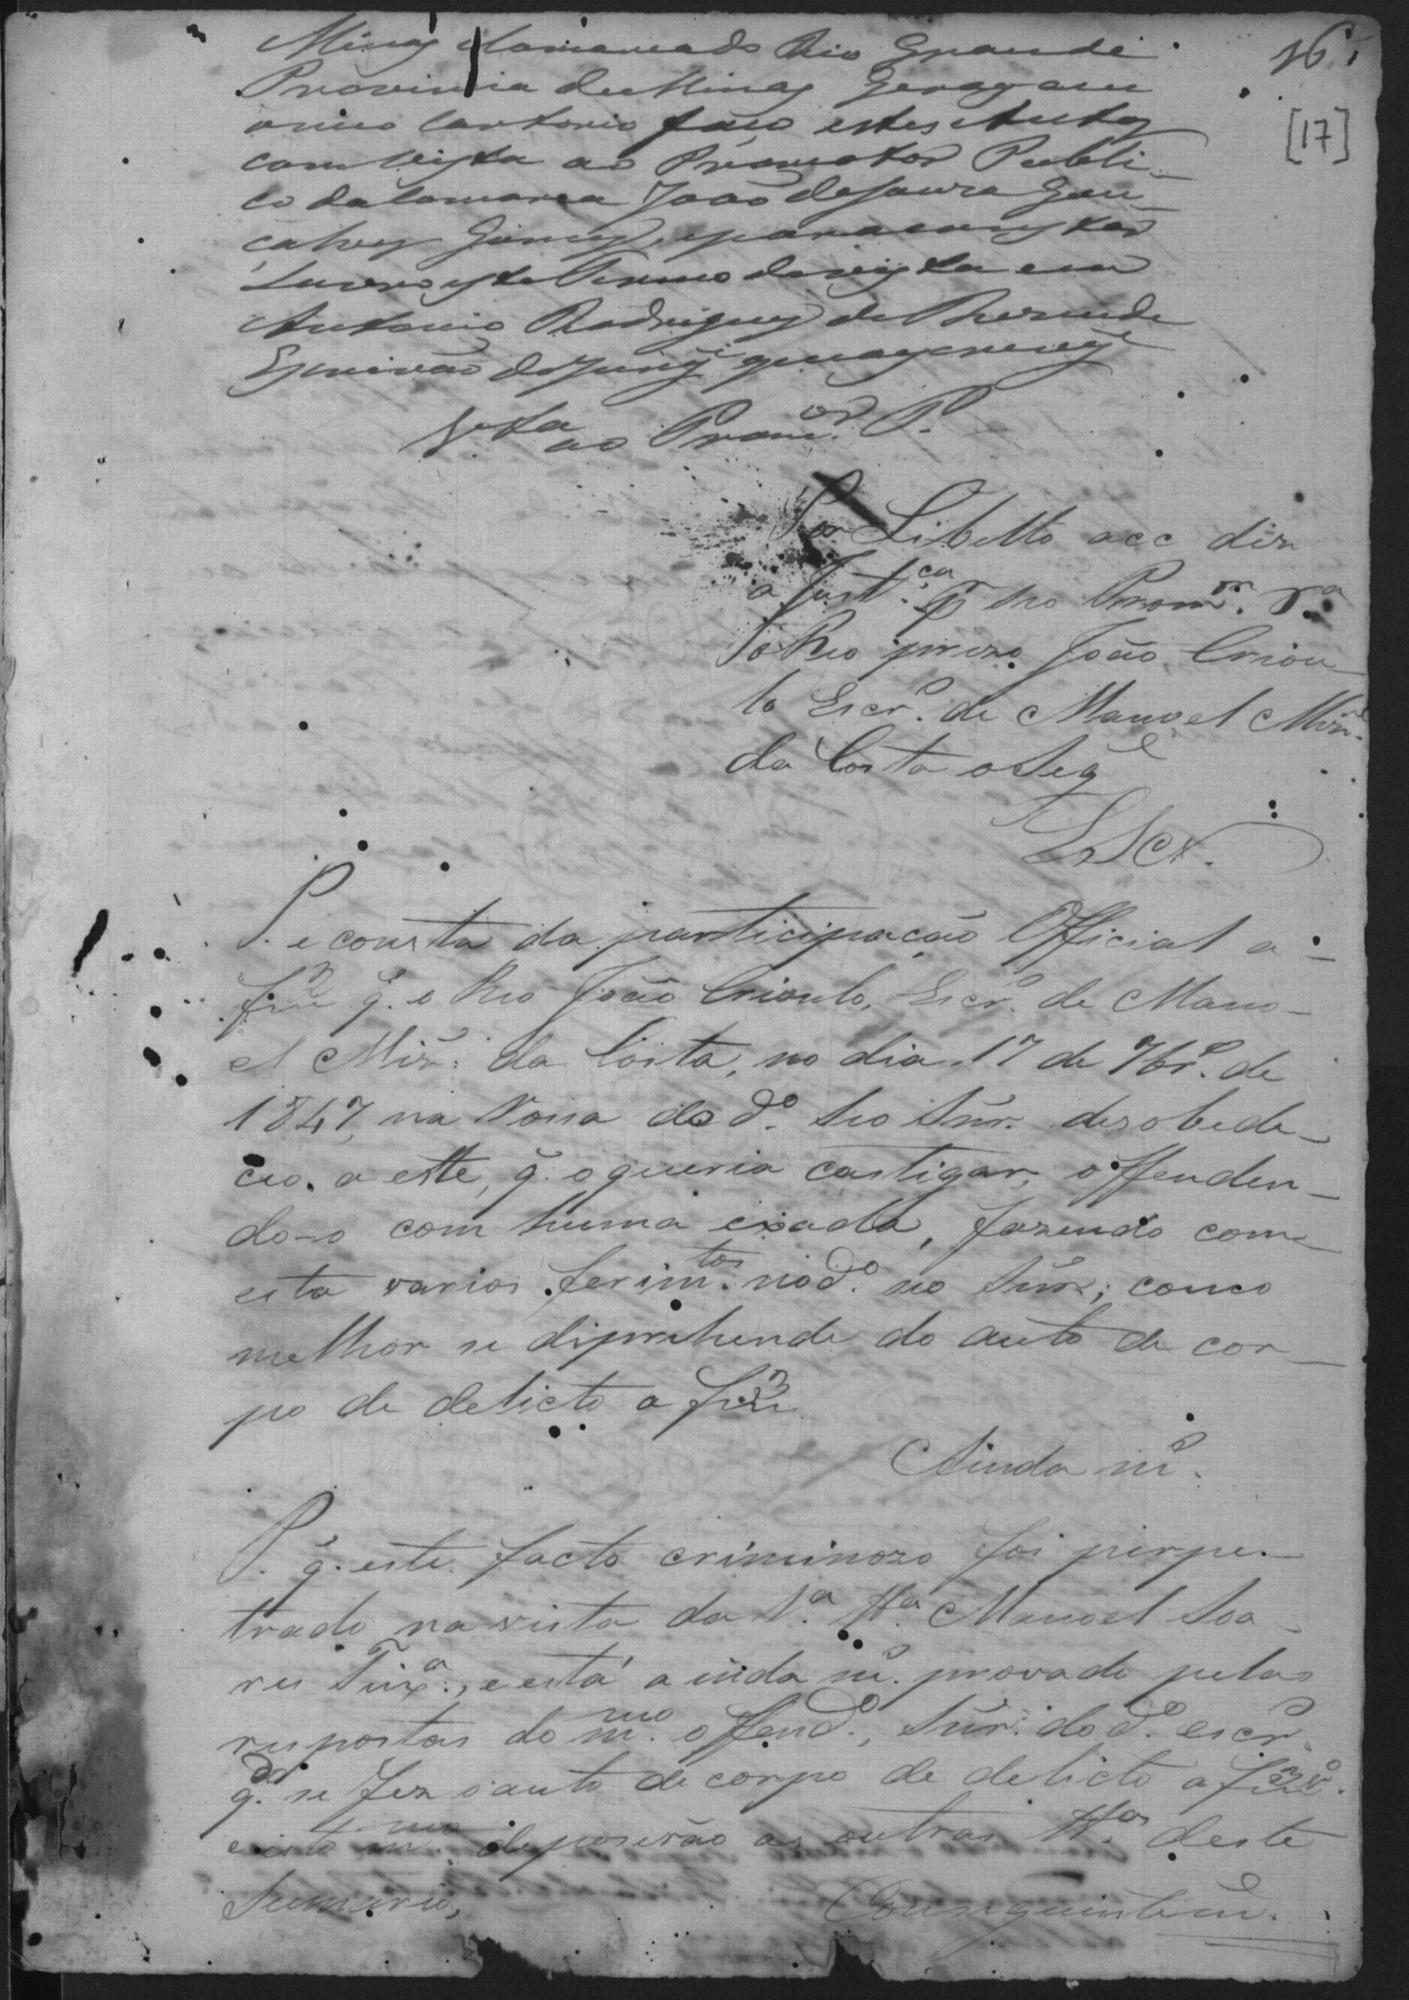 16
[17]
Minas Comarca do Rio Grande
Provincia de Minas Geraes em
o meo Cartorio faço estes Autos
com vista ao Promotor Publi-
co da Comarca João de Souza Gon-
çalves Gomes, e para constar
Lavro este Termo de vista eu
Antonio Rodrigues de Rezende
Escrivão do Jury que escrevy
Vta ao Promor. P.
Por Libello acc diz
a Justca. p seo Promor.
o Reo prezo João Criou-
lo Escro. de Manoel
da Costa o Sege
E S C.
P. e consta da participação Official a
f q. o Reo João Crioulo, Escro. de Mano-
el da Costa, no dia 17 de 7bro. de
1847, na Rossa do do. seo Snr. desobede-
ceo a este, q. o queria castigar, offenden-
do-o com huma enxada, fazendo com
esta varios ferimtos. no do. seo Snr; como
melhor se diprehende do auto de cor-
po de delicto a f
Ainda m.
P. q. este facto criminozo foi perpe-
trado na vista da 1a. tta. Manoel Soa-
res Teixa., e está ainda m. provado pelas
respostas do mmo. offendo., Snr. do do. escro.
qdo. se fez o auto de corpo de delicto a f
e isto mmo. deposerão as outras ttas. deste
Sumario,
Consequintem.